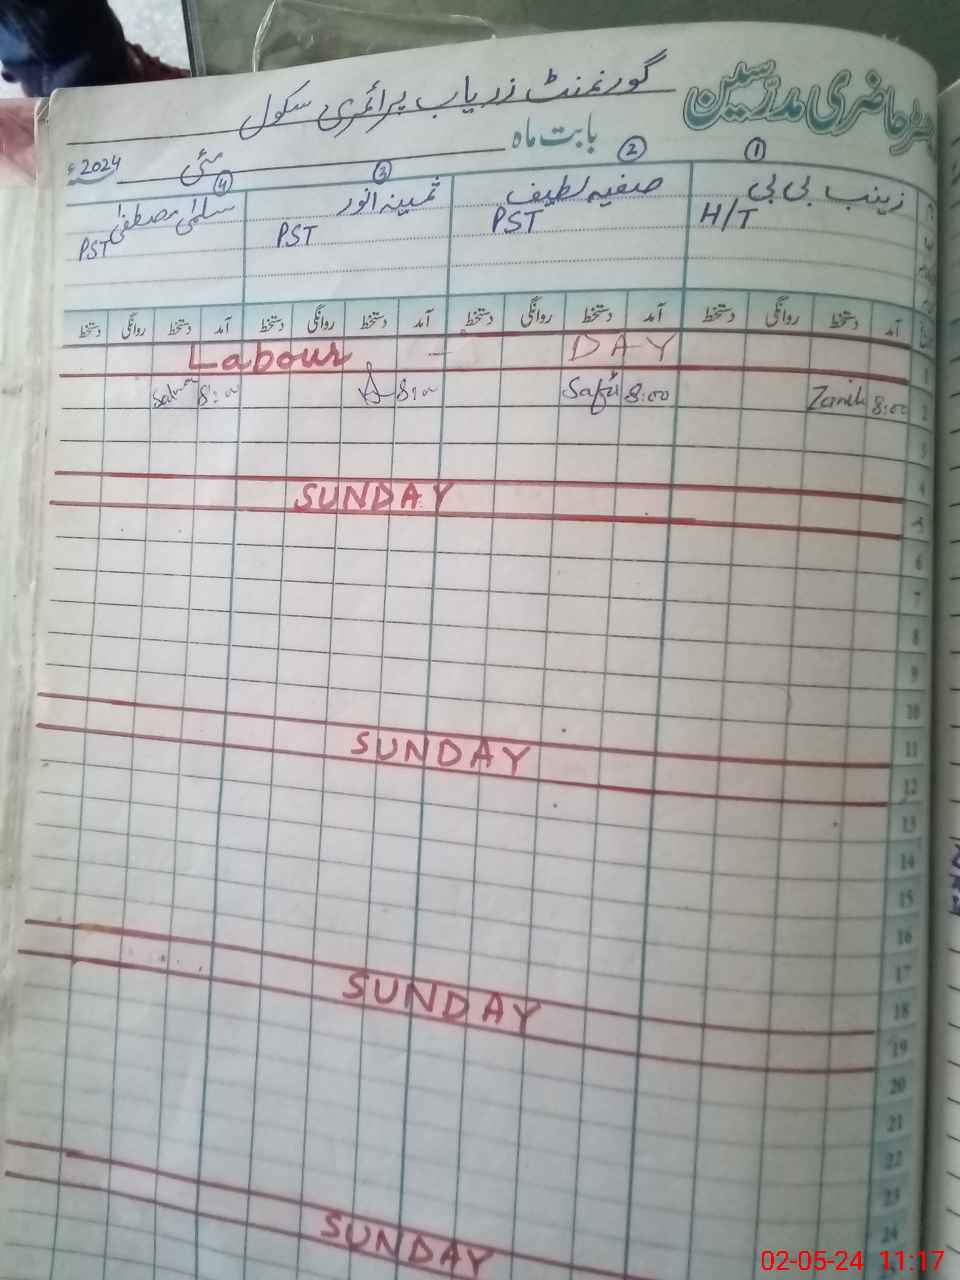 رجسٹر حاضری مدرسین
گورنمنٹ زریاب پرائمری سکول
بابت ماہ مئی 2024ء
① ② ③ ④
زینب بی بی صفیہ لطیف ثمینہ انور سلمیٰ مصطفیٰ
H/T PST PST PST
آمد دستخط روانگی دستخط آمد دستخط روانگی دستخط آمد دستخط روانگی دستخط آمد دستخط روانگی دستخط
Labour - DAY 1
2 8:00 8:00 8:00 8:00
3
4
SUNDAY 5
6
7
8
9
10
11
SUNDAY 12
13
14
15
16
17
18
SUNDAY 19
20
21
22
23
24
SUNDAY
02-05-24 11:17